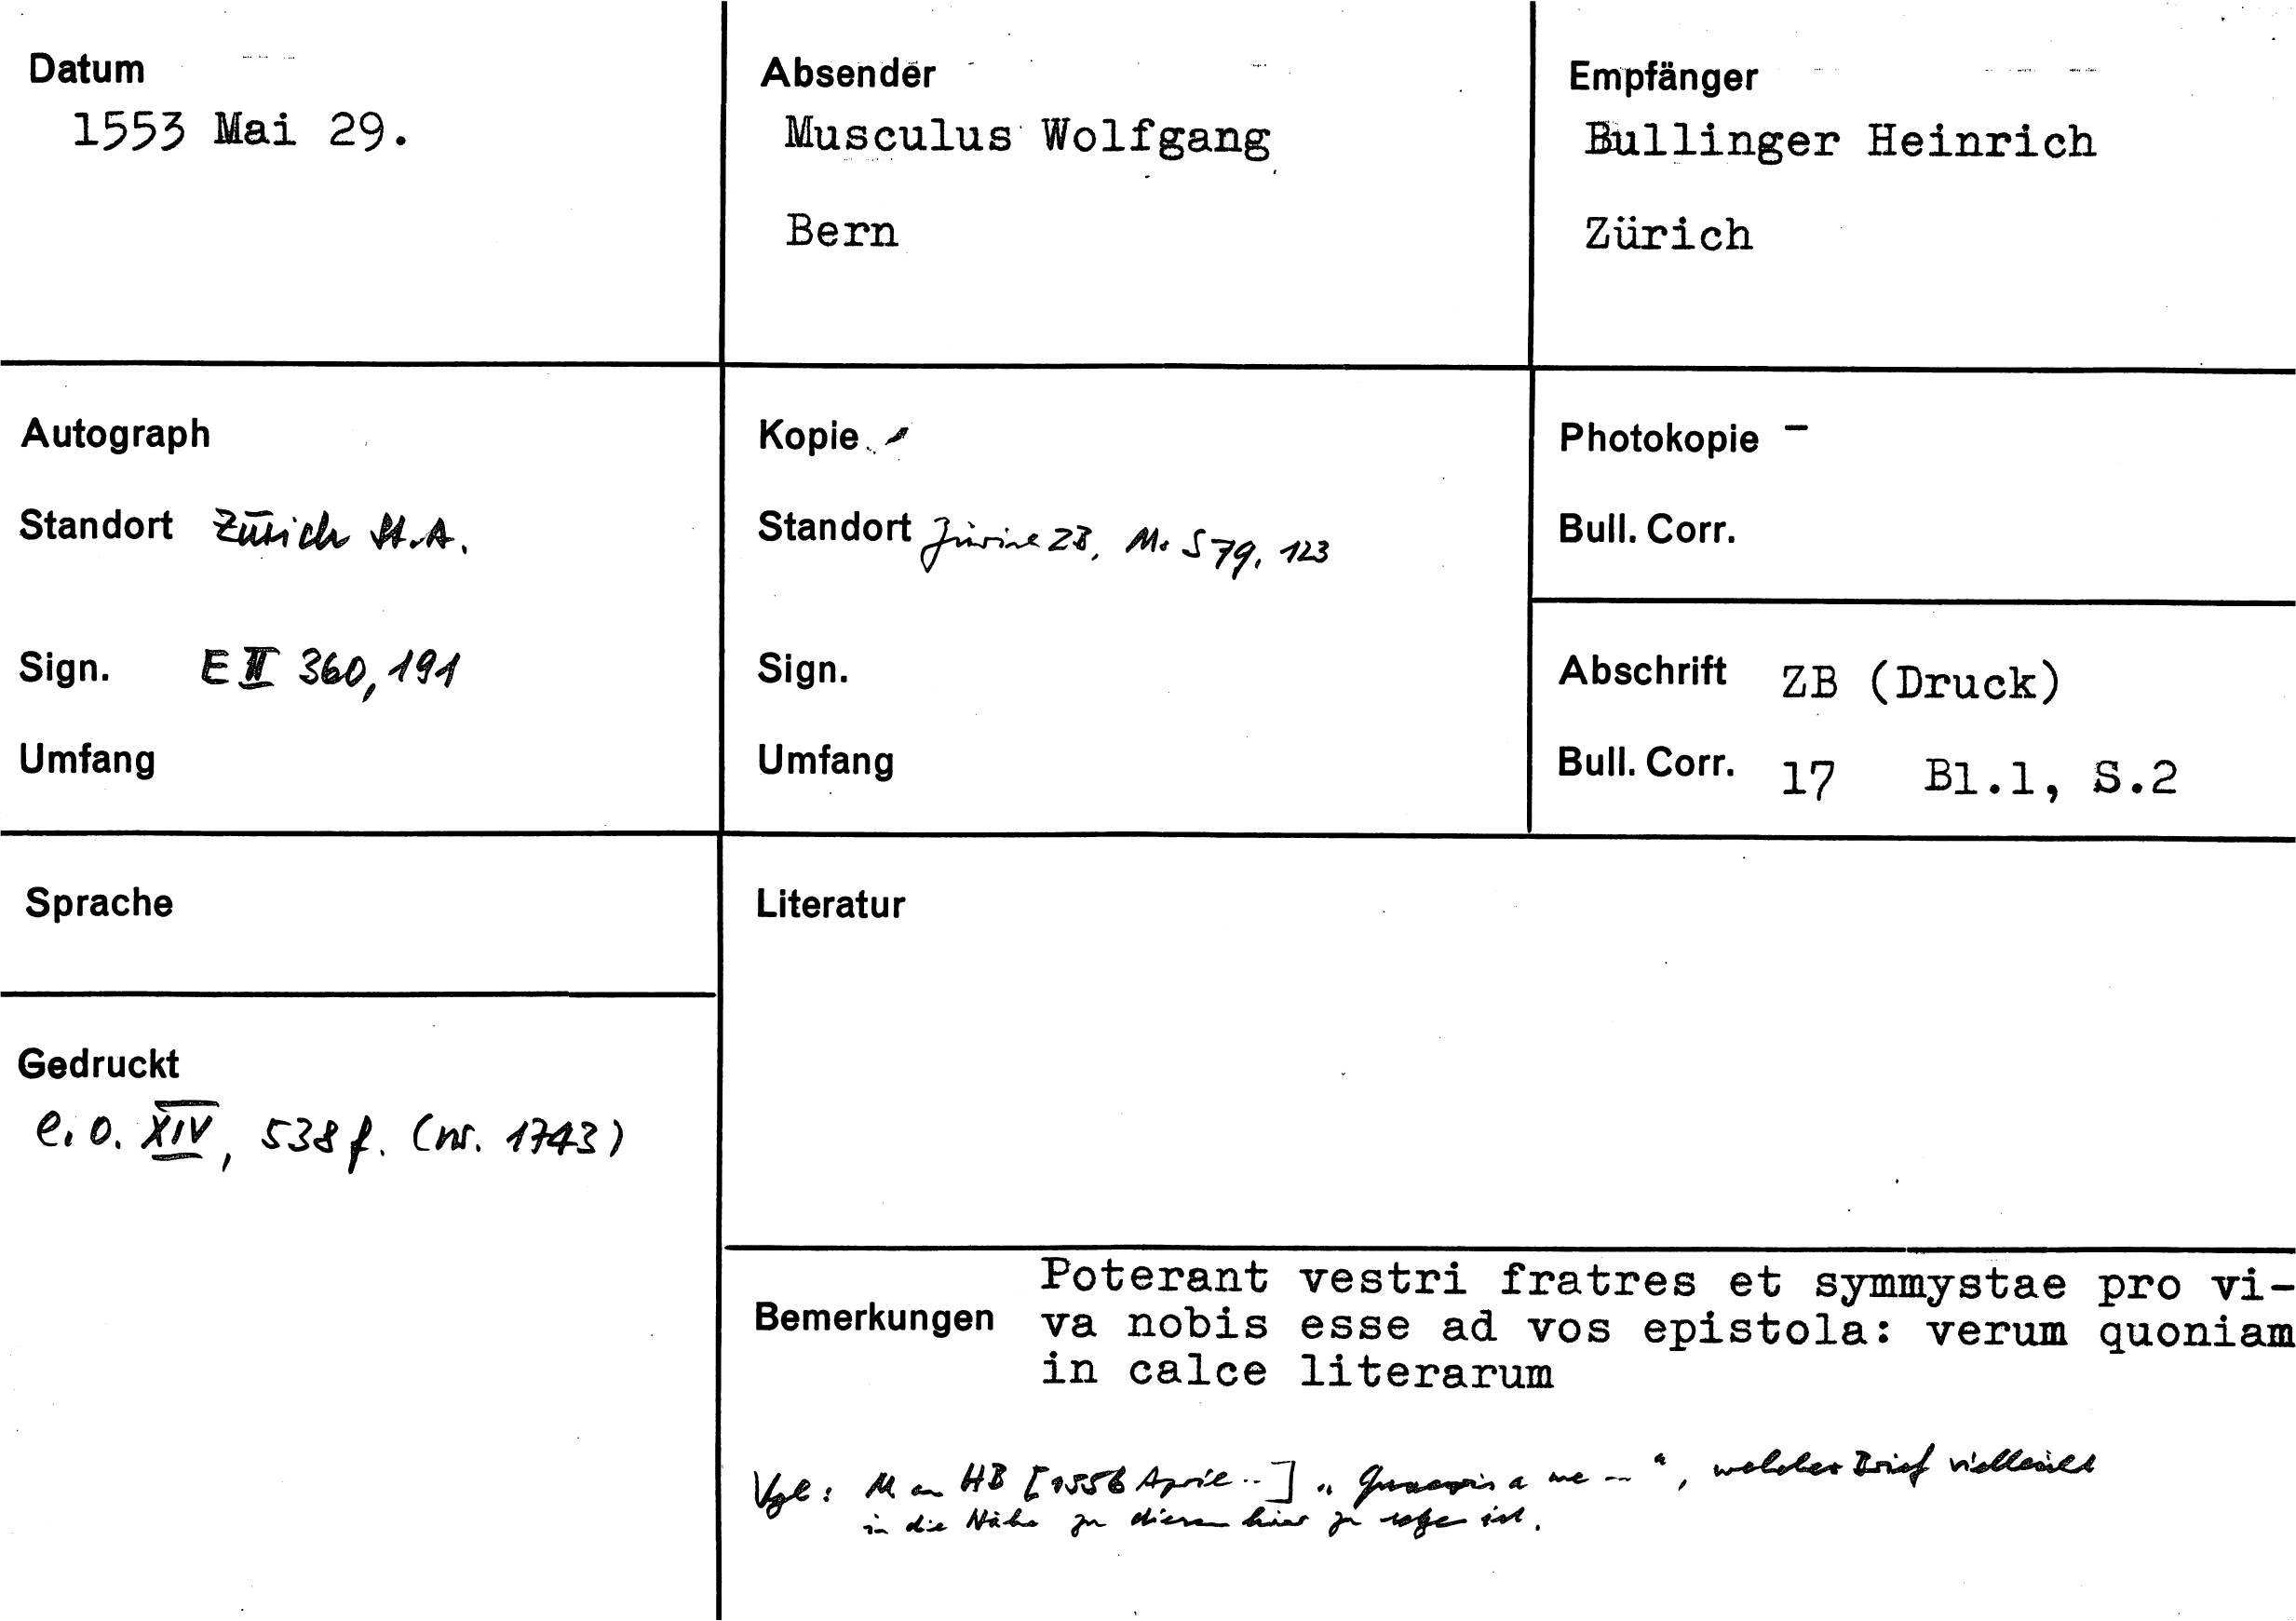 Datum
1553 Mai 29.
Absender
Musculus Wolfgang
Bern
Empfänger
Bullinger Heinrich
Zürich
Autograph
Standort Zürich St.A.
Sign. E II 360, 191
Umfang
Kopie
Standort Zürich ZB, Ms S 79, 123
Sign.
Umfang
Photokopie -
Bull. Corr.
Abschrift ZB (Druck)
Bull. Corr. 17 Bl.1, S.2
Sprache
Gedruckt
C.O. XIV, 538 f. (nr. 1743)
Literatur
Bemerkungen
Poterant vestri fratres et symmystae pro vi-
va nobis esse ad vos epistola: verum quoniam
in calce literarum
Vgl: M an HB [1556 April ..] " a me -- ", welcher Brief vielleicht
in die Nähe zu diesem hier zu ist.